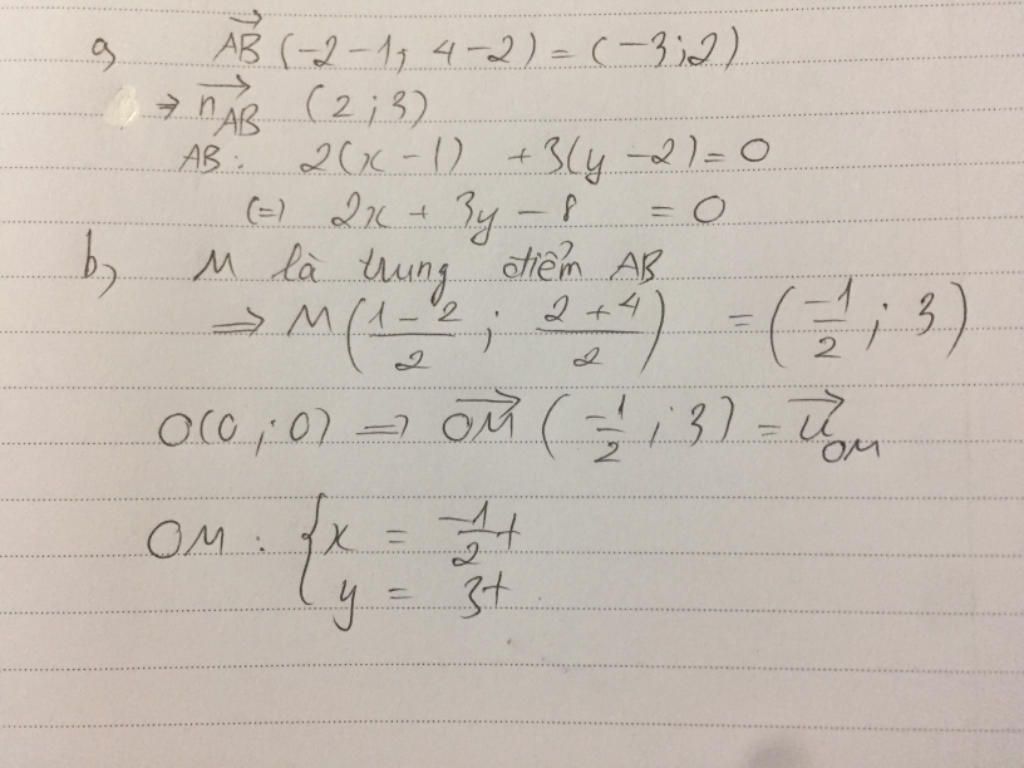 a, AB→ (-2-1; 4-2) = (-3;2)
⇒ n→AB (2;3)
AB: 2(x-1) +3(y-2)=0
(=) 2x + 3y - 8 = 0
b, M là trung điểm AB
⇒ M((1-2)/2; (2+4)/2) = (-1/2; 3)
O(0;0) ⇒ OM→ (-1/2; 3) = u→OM
OM: { x = -1/2 t
y = 3t